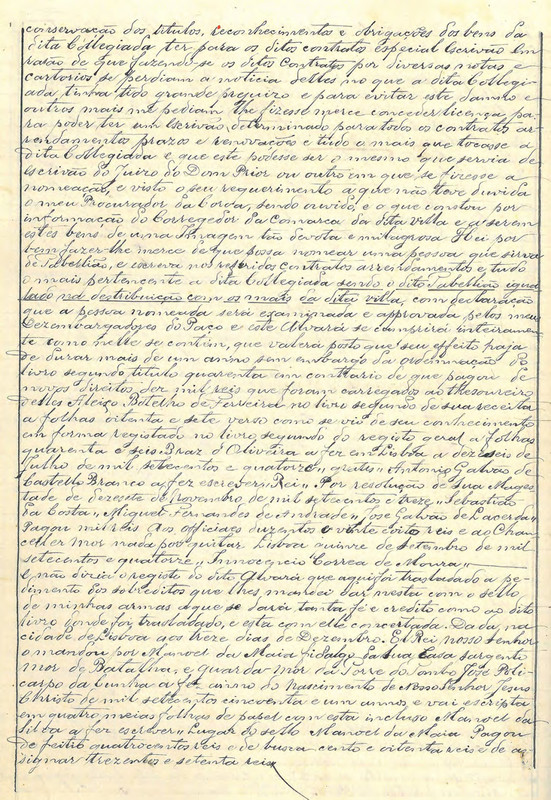 conservação dos titulos, reconhecimentos e obrigações dos bens da
dita Collegiada ter para os ditos contratos especial Escrivão em
rasão de que fazendo-se os ditos contratos por diversas notas e
cartorios se perdiam a noticia delles no que a dita Collegi-
ada tinha tido grande prejuizo e para evitar este damno e
outros mais me pediam lhe fizesse merce conceder licença pa-
ra poder ter um Escrivão determinado para todos os contratos ar-
rendamentos prazos e renovações e tudo a mais que tocasse a
Dita Collegiada e que este podesse ser o mesmo que servia de
Escrivão do Juizo do Dom Prior ou outro em que se fizesse a
nomeação, e visto o seu requerimento a que não teve duvida
o meu Procurador da Coroa, sendo ouvido, e o que constou por
informação do Corregedor da Comarca da dita villa e a serem
estes bens de uma Imagem tão devota e milagrosa Hei por
bem fazer lhe merce de que possa nomear uma pessoa que sirva
de Tabelião, e escreva nos referidos contratos arrendamentos e tudo
o mais pertencente a dita Collegiada sendo o dito Tabellião igua-
lado na destribuição com os mais da dita villa, com declaração
que a pessoa nomeada será examinada e approvada pelos meus
Dezembargadores do Paço e este Alvará se comprirá inteiramen-
te como nelle se contém, que valerá posto que seu effeito haja
de durar mais de um anno sem embargo da ordennação do
livro segundo titulo quarenta em contrario de que pagou de
novos direitos dez mil reis que foram carregados ao thesoureiro
delles Aleixo Botelho de Ferreira no livro segundo de sua receita
a folhas oitenta e sete verso como se viu de seu conhecimento
em forma registado no livro segundo do registo geral a folhas
quarenta e seis Braz d'Oliveira a fez em Lisboa a dezeseis de
Julho de mil setecentos e quatorze, grátis "Antonio Galvão de
Castello Branco a fez escrever, Rei" Por resolução de Sua Mages-
tade de dezesete de Novembro de mil setecentos e treze, Sebastião
da Costa "Miguel Fernandes de Andrade" José Galvão de Lacerda"
Pagou mil reis Aos officiaes duzentos e vinte e oito reis e ao Chan-
celler mor nada por quitar Lisboa quinze de Setembro de mil
setecentos e quatorze "Innocencio Correa de Moura"
E não dizia o registo do dito Alvará que aqui foi trasladado a pe-
dimento dos sobreditos que lhes mandei dar nesta com o sello
de minhas armas a que se dará tanta fé e credito como ao dito
livro donde foi trasladado, e esta com elle concertada. Dada na
cidade de Lisboa aos treze dias de Dezembro. El Rei nosso Senhor
o mandou por Manoel da Maia fidalgo da sua casa sargento
mor de Batalha, e guarda mor da Torre do Tombo José Poli-
carpo da Cunha a fez anno do Nascimento de Nosso Senhor Jesus
Christo de mil setecentos cincoenta e um annos, e vai escripta
em quatro meias folhas de papel com esta incluso Manoel da
Silva a fez escrever "Lugar do sello Manoel da Maia Pagou
de feitio quatrocentos reis e de busca cento e oitenta reis e de as-
signar trezentos e setenta reis